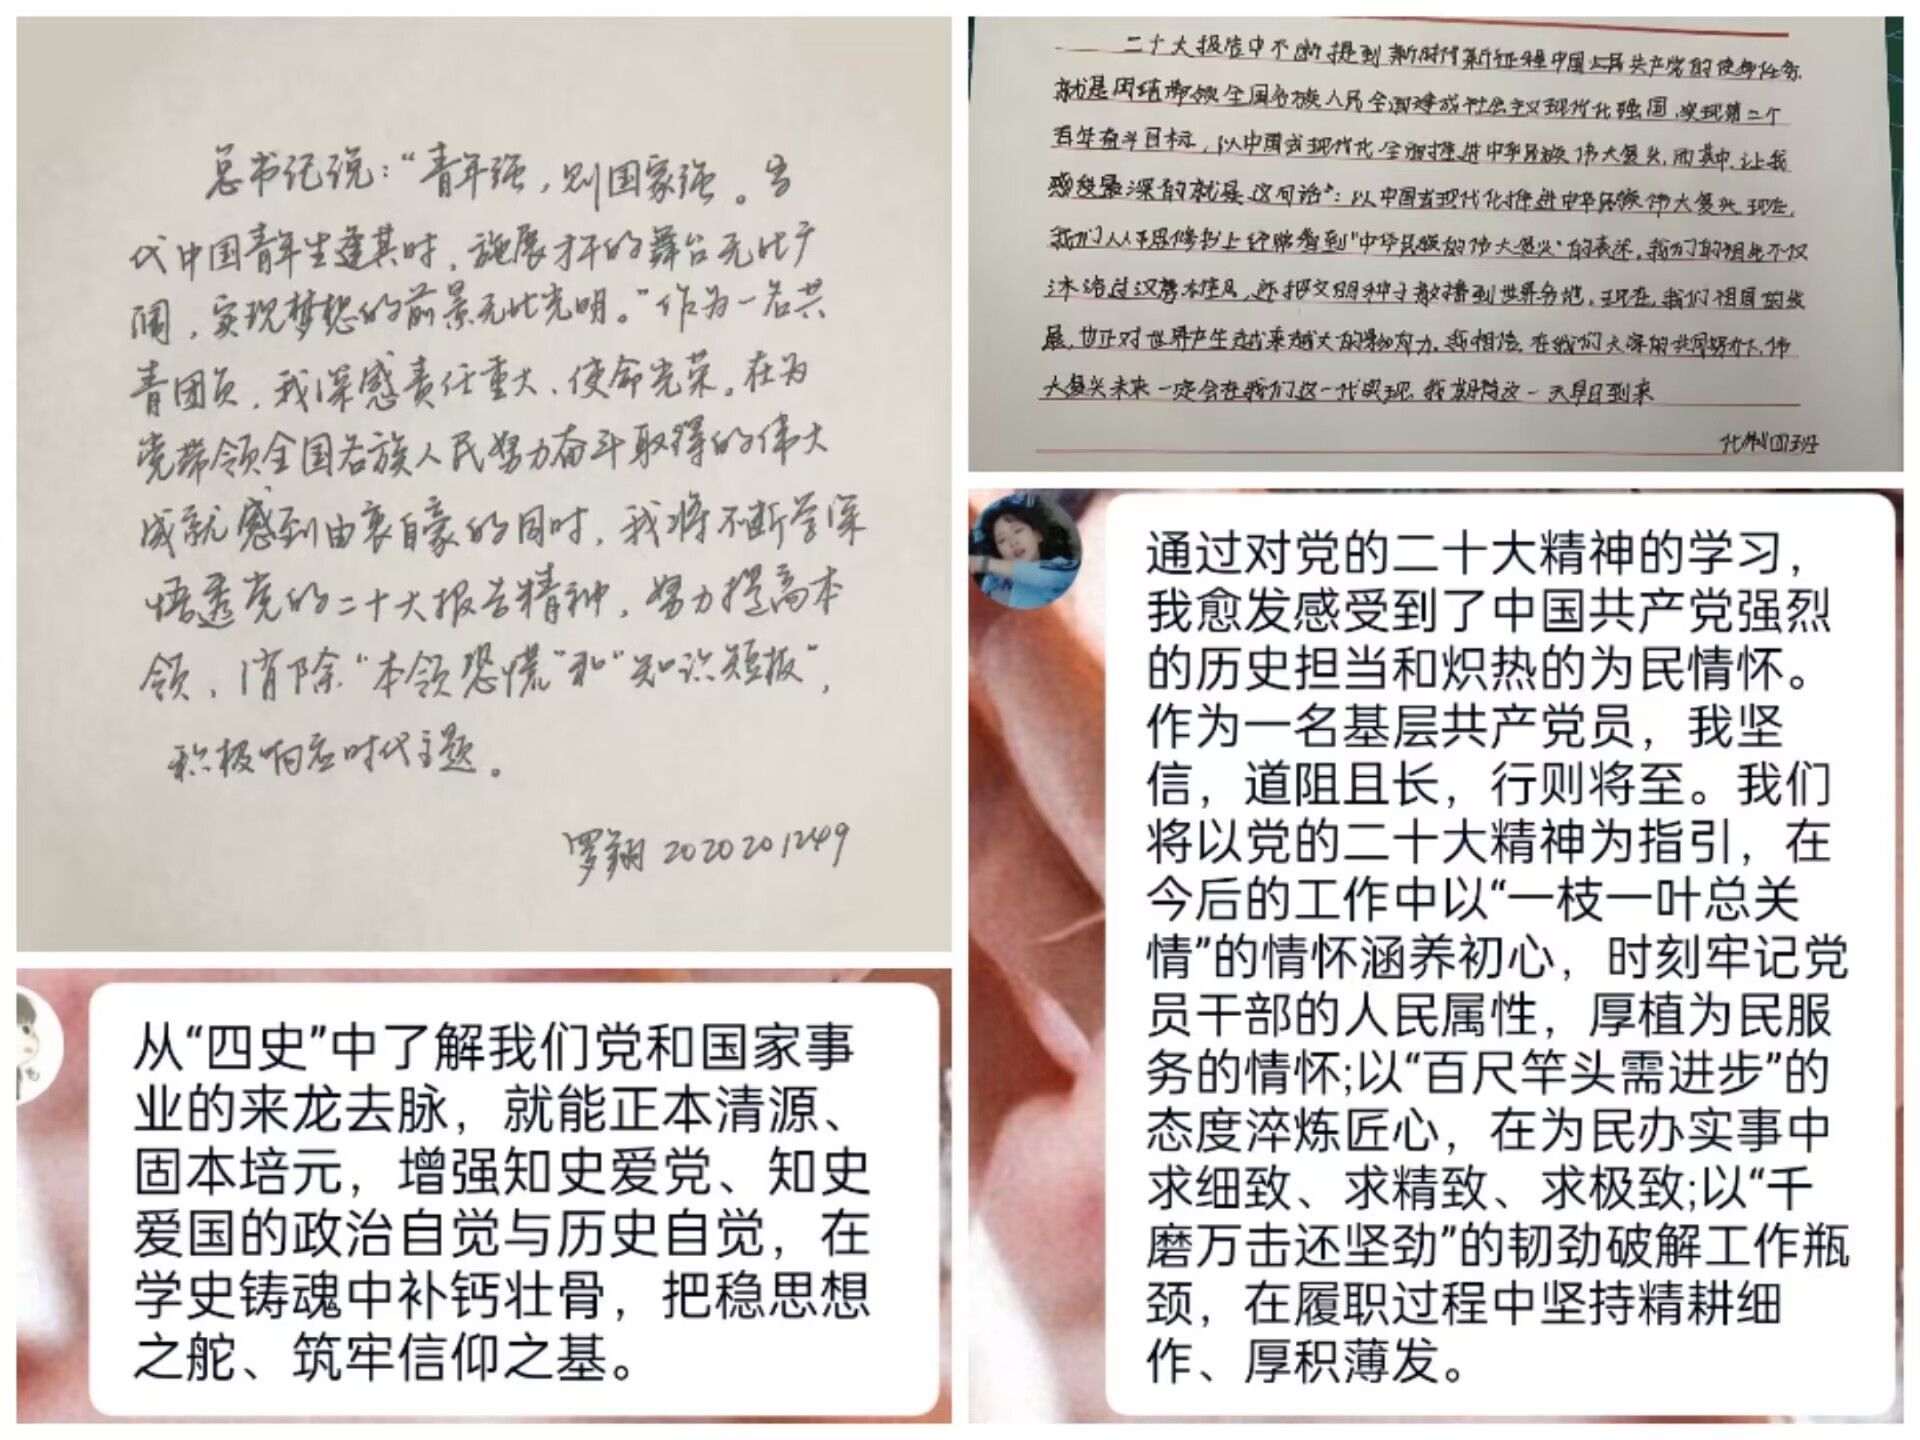 总书记说：“青年强，则国家强。当
代中国青年生逢其时，施展才干的舞台无比广
阔，实现梦想的前景无比光明。”作为一名共
青团员，我深感责任重大、使命光荣。在为
党带领全国各族人民努力奋斗取得的伟大
成就感到由衷自豪的同时，我将不断学深
悟透党的二十大报告精神，努力提高本
领，消除“本领恐慌”和“知识短板”，
积极响应时代主题。
罗翔 2020201249
二十大报告中不断提到新时代新征程中国共产党的使命任务
就是团结带领全国各族人民全面建成社会主义现代化强国，实现第二个
百年奋斗目标，以中国式现代化全面推进中华民族伟大复兴，而其中，让我
感受最深的就是这句话“：以中国式现代化推进中华民族伟大复兴，现在，
我们从思修书上经常看到“中华民族的伟大复兴”的表述，我们的祖先不仅
沐浴过汉唐雄风，还把文明种子散播到世界各地，现在，我们祖国的发
展，也正对世界产生越来越大的影响力。我相信，在我们大家的共同努力下，伟
大复兴未来一定会在我们这一代实现，我期待这一天早日到来
从“四史”中了解我们党和国家事
业的来龙去脉，就能正本清源、
固本培元，增强知史爱党、知史
爱国的政治自觉与历史自觉，在
学史铸魂中补钙壮骨，把稳思想
之舵、筑牢信仰之基。
通过对党的二十大精神的学习，
我愈发感受到了中国共产党强烈
的历史担当和炽热的为民情怀。
作为一名基层共产党员，我坚
信，道阻且长，行则将至。我们
将以党的二十大精神为指引，在
今后的工作中以“一枝一叶总关
情”的情怀涵养初心，时刻牢记党
员干部的人民属性，厚植为民服
务的情怀;以“百尺竿头需进步”的
态度淬炼匠心，在为民办实事中
求细致、求精致、求极致;以“千
磨万击还坚劲”的韧劲破解工作瓶
颈，在履职过程中坚持精耕细
作、厚积薄发。